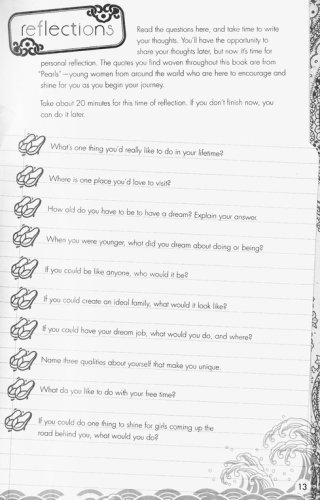 reflections
Read the questions here, and take time to write
your thoughts. You'll have the opportunity to
share your thoughts later, but now it's time for
personal reflection. The quotes you find woven throughout this book are from
"Pearls"—young women from around the world who are here to encourage and
shine for you as you begin your journey.
Take about 20 minutes for this time of reflection. If you don't finish now, you
can do it later.
What's one thing you'd really like to do in your lifetime?
Where is one place you'd love to visit?
How old do you have to be to have a dream? Explain your answer.
When you were younger, what did you dream about doing or being?
If you could be like anyone, who would it be?
If you could create an ideal family, what would it look like?
If you could have your dream job, what would you do, and where?
Name three qualities about yourself that make you unique.
What do you like to do with your free time?
If you could do one thing to shine for girls coming up the
road behind you, what would you do?
13